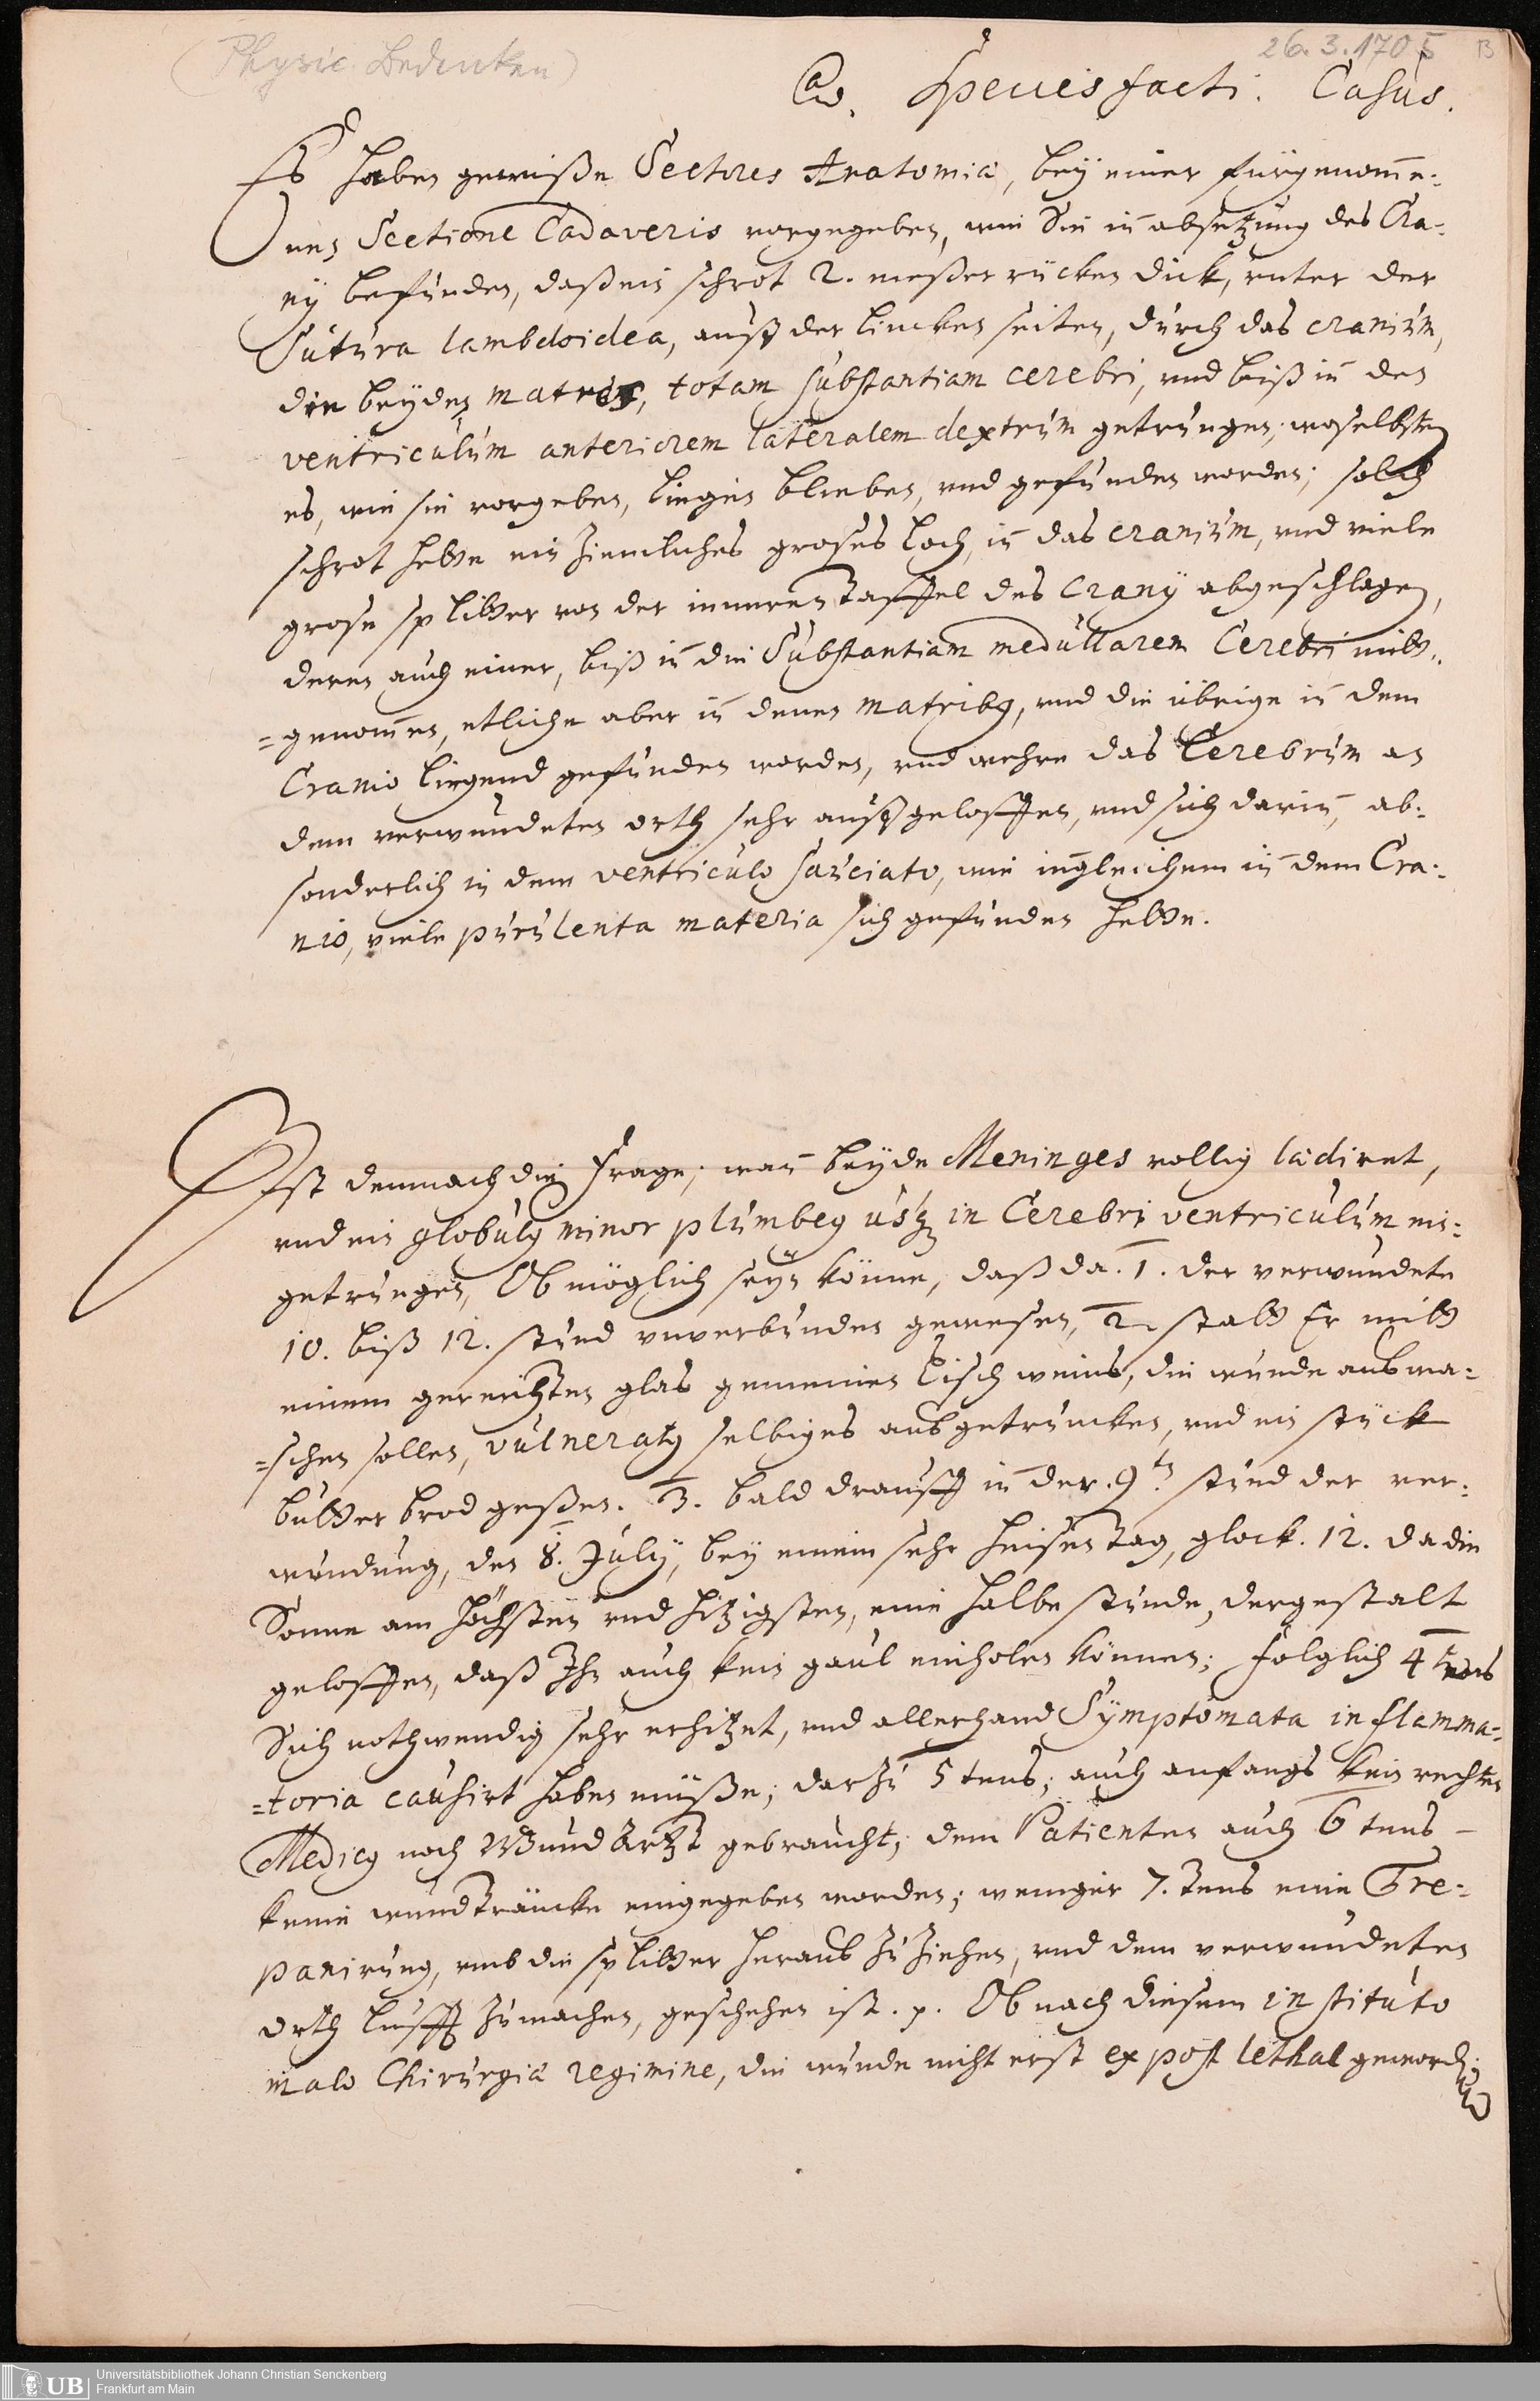 (Physic. Bedencken)
26.3.1705
B
Speciesfacti. Casus.
Es haben gewiße Sectores Anatomiæ, bey einer fürgenom̄e-
nen Sectione Cadaveris vorgegeben, wie Sie in absetzung des Cra-
nij befunden, daß ein schrot 2. meßerrücken dick, unter der
Sutura lambdoidea, auff der lincken seiten, durch das cranium,
die beyden matres, totam substantiam cerebri, und biß in den
ventriculum anteriorem lateralem dextrum getrungen, woselbsten
es, wie sie vorgeben, liegen blieben, und gefunden worden; solch
schrot hette ein ziemliches großes Loch, in das cranium, und viele
große splitter von der inneren Taffel des Cranij abgeschlagen,
deren auch einer, biß in die Substantiam medullarem Cerebri mitt-
=genom̄en, etliche aber in denen matribus, und die übrige in dem
Cranio liegend gefunden worden, und wehre das Cerebrum an
dem verwundeten orth sehr auffgeloffen, und sich darin, ab-
sonderlich in dem ventriculo sauciato, wie ingleichem in dem Cra-
nio, viele purulenta materia sich gefunden hette.
Ist demnach die Frage, wan̄ beyde Meninges vollig lædiret,
und ein globulus minor plumbeus usq in Cerebri ventriculum ein-
getrungen, Ob möglich seyn könne, daß da. 1. der verwundete
10. biß 12. stund unverbunden gewesen, 2. statt Er mitt
einem gereichten glas gemeinen Tisch weins, die wunde auswa-
=schen sollen, vulneratus selbiges ausgetruncken, und ein stück
butter brod geßen. 3. bald drauff in der 9.tn stund der ver-
wundung, den 8. July, bey einem sehr heisen Tag, glock. 12. da die
Sonne am höchsten und hitzigsten, eine halbe stunde, dergestalt
geloffen, daß Ihn auch kein gaul einholen können; folglich 4tens
Sich nothwendig sehr erhitzet, und allerhand Symptomata inflamma-
=toria causirt haben müße; darzu 5tens, auch anfangs kein rechter
Medicus noch Wund Artzt gebraucht, dem Patienten auch 6tens
keine wundträncke eingegeben worden; weniger 7.tens eine Tre-
panirung, umb die splitter heraus zu ziehen, und dem verwundeten
orth lufft zumachen, geschehen ist. p. Ob nach diesem instituto
malo Chirurgiæ regimine, die wunde nicht erst ex post lethal geword.
UB Universitätsbibliothek Johann Christian Senckenberg
Frankfurt am Main